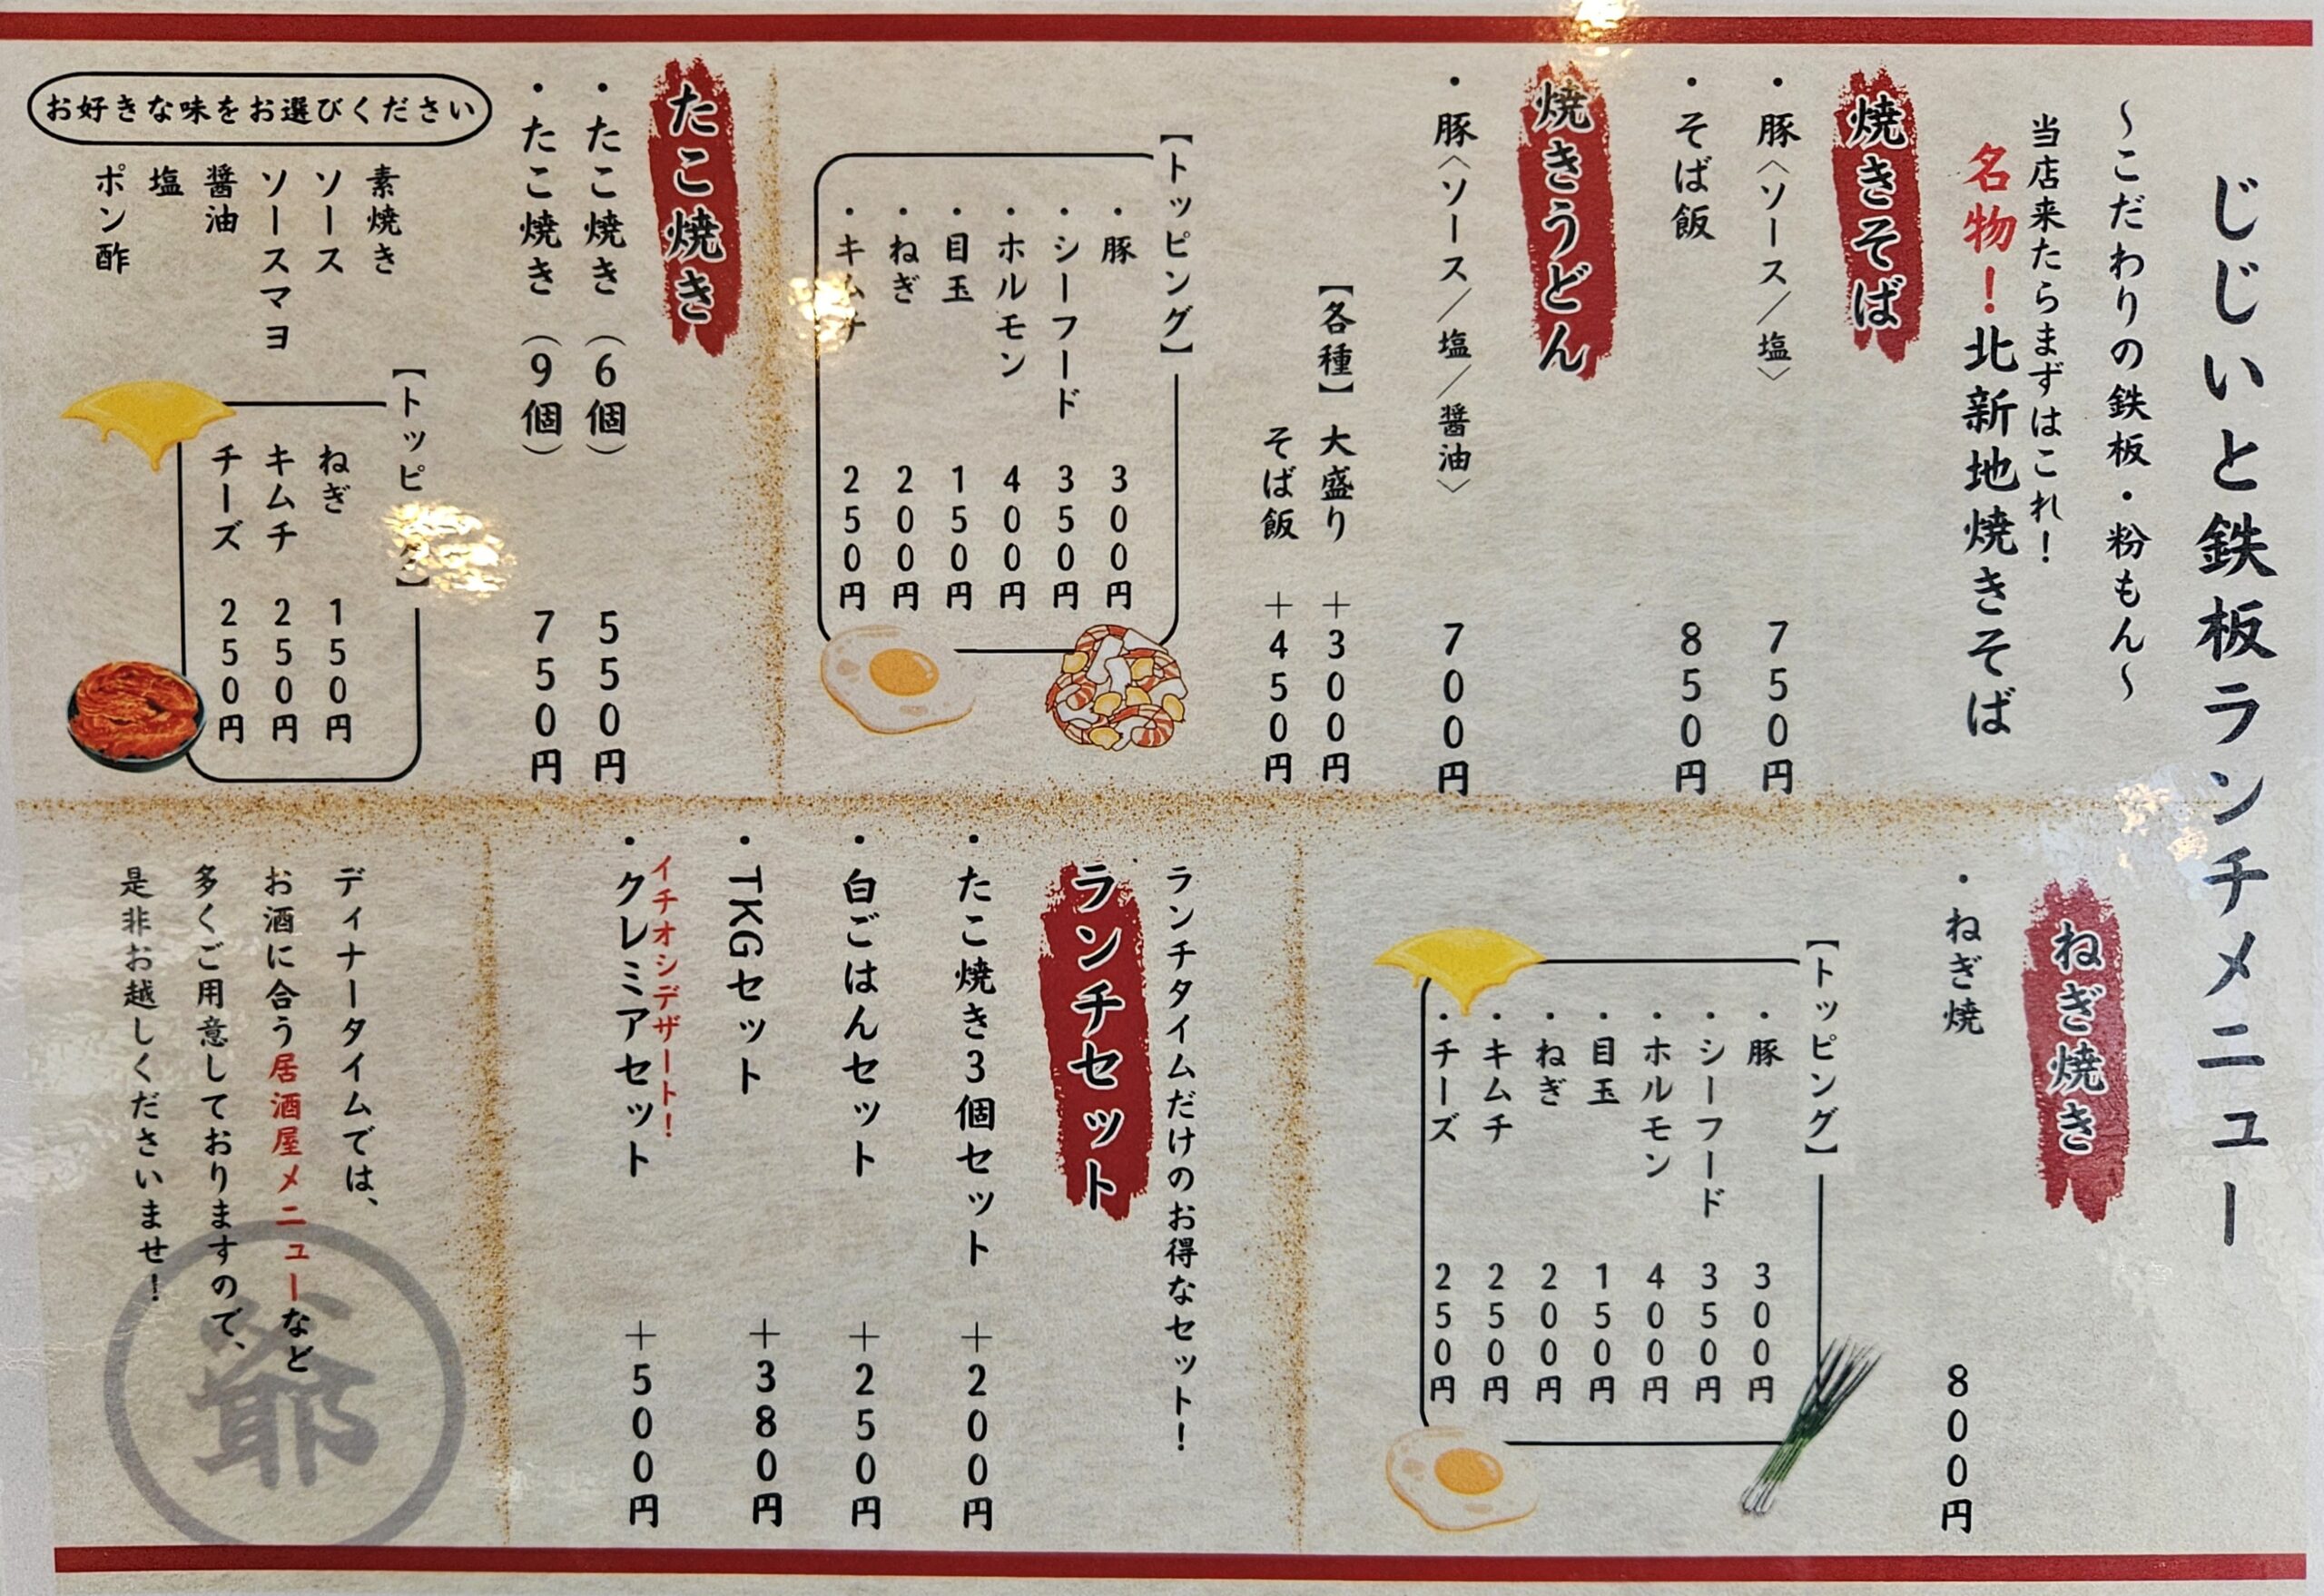 じじいと鉄板ランチメニュー
～こだわりの鉄板・粉もん～
当店来たらまずはこれ！
名物！北新地焼きそば
焼きそば
・豚〈ソース／塩〉 750円
・そば飯 850円
焼きうどん
・豚〈ソース／塩／醤油〉 700円
【各種】大盛り ＋300円
そば飯 ＋450円
【トッピング】
・豚 300円
・シーフード 350円
・ホルモン 400円
・目玉 150円
・ねぎ 200円
・キムチ 250円
たこ焼き
・たこ焼き（6個） 550円
・たこ焼き（9個） 750円
お好きな味をお選びください
素焼き
ソース
ソースマヨ
醤油
塩
ポン酢
【トッピング】
ねぎ 150円
キムチ 250円
チーズ 250円
ねぎ焼き
・ねぎ焼 800円
【トッピング】
・豚 300円
・シーフード 350円
・ホルモン 400円
・目玉 150円
・ねぎ 200円
・キムチ 250円
・チーズ 250円
ランチタイムだけのお得なセット！
ランチセット
・たこ焼き3個セット ＋200円
・白ごはんセット ＋250円
・TKGセット ＋380円
イチオシデザート！
・クレミアセット ＋500円
ディナータイムでは、
お酒に合う居酒屋メニューなど
多くご用意しておりますので、
是非お越しくださいませ！
爺